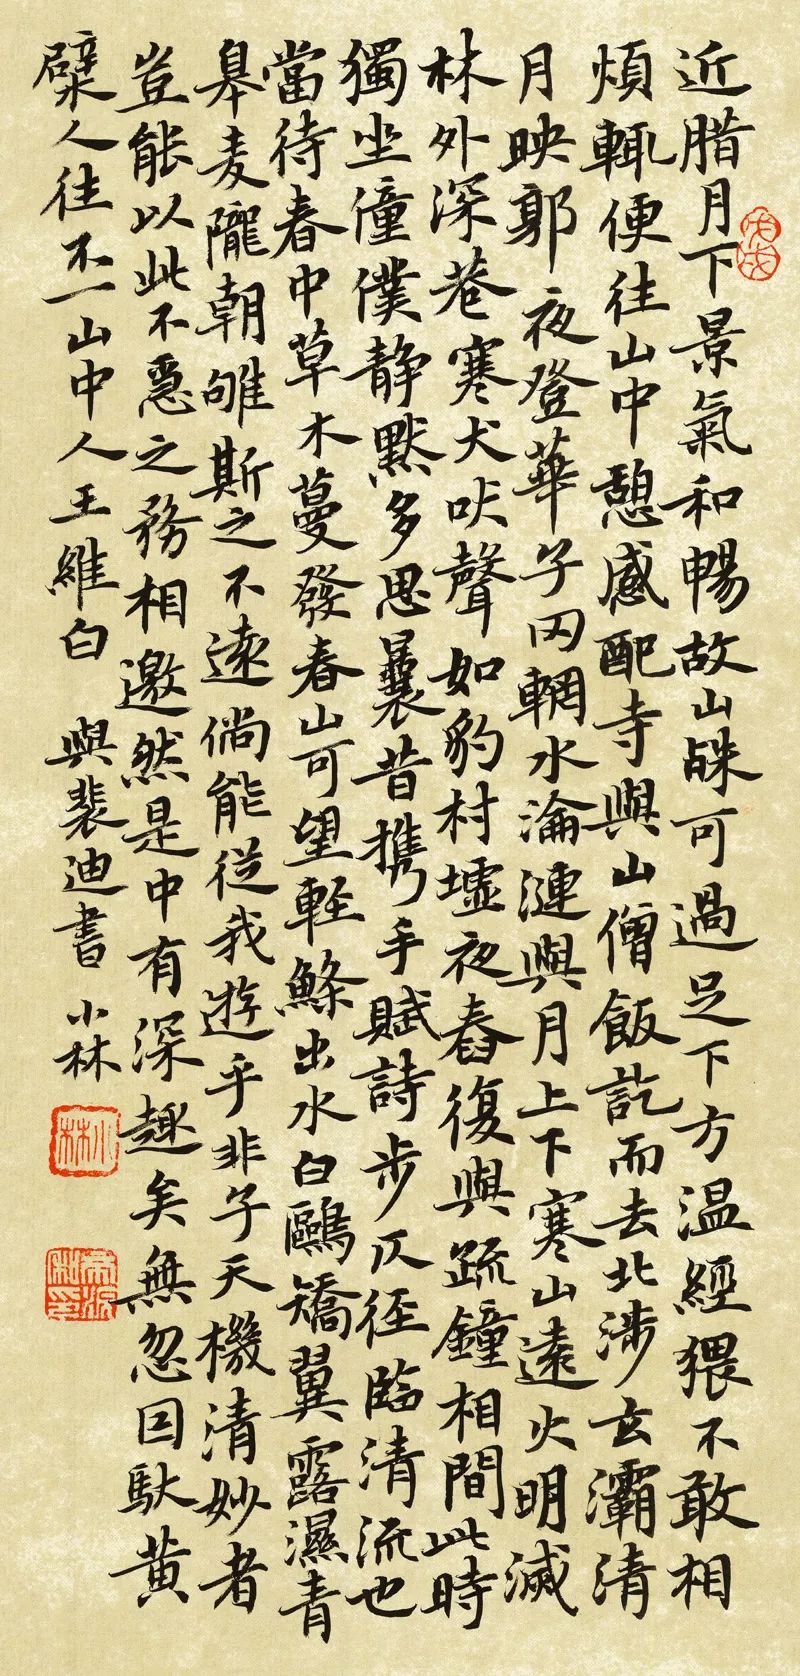 戊戌
近腊月下景氣和暢故山殊可過足下方温經猥不敢相
煩輒便往山中憩感配寺與山僧飯訖而去北涉玄灞清
月映郭夜登華子岡輞水淪漣與月上下寒山遠火明滅
林外深巷寒犬吠聲如豹村墟夜舂復與疏鐘相間此時
獨坐僮僕静默多思曩昔携手賦詩步仄徑臨清流也
當待春中草木蔓發春山可望輕鯈出水白鷗矯翼露濕青
皋麦隴朝雊斯之不遠倘能從我遊乎非子天機清妙者
豈能以此不急之務相邀然是中有深趣矣無忽因馱黄
檗人往不一山中人王維白 與裴迪書 小林
小林